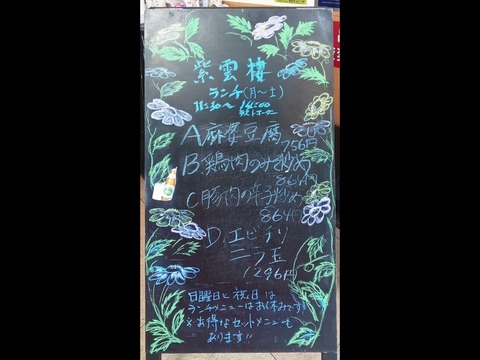 紫雲楼
ランチ(月〜土)
11:30〜 14:00
ラストオーダー
A 麻婆豆腐
756円
B 鶏肉のみそ炒め
864円
C 豚肉の辛子炒め
864円
D. エビチリ
ニラ玉
1296円
日曜日と祝日は
ランチメニューはお休みです!
※お得なセットメニューも
あります!!